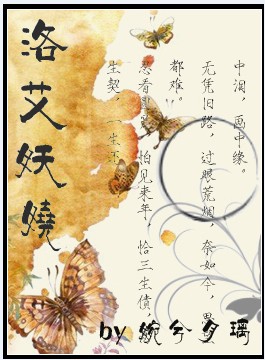 洛艾妖嬈
中泪，画中缘。
无凭旧路，过眼荒烟，奈如今，
都难。
看 怕见来年，恰三生债，
生契，一生
by 婉兮夕璃